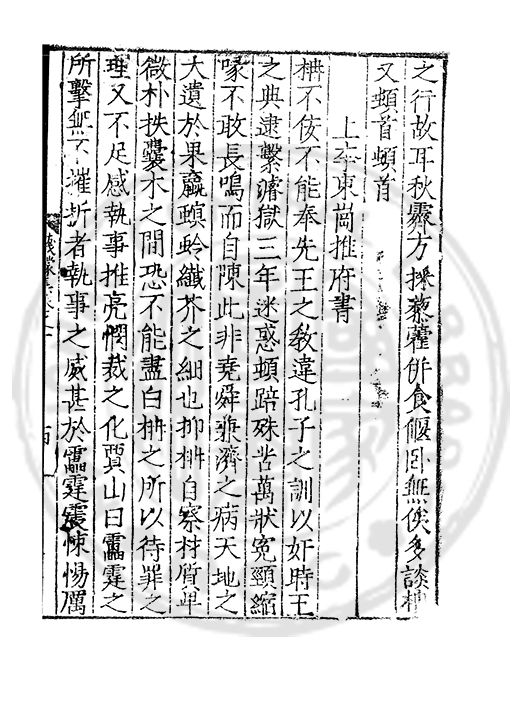 之行故耳秋霽方採藜藿併食偃臥無俟多談柟
又頓首頓首
上李東崗推府書
柟不佞不能奉先王之敎違孔子之訓以奸時王
之典逮繫濬獄三年迷惑頓踣殊苦萬狀冤頸縮
喙不敢長鳴而自陳此非堯舜兼濟之病天地之
大遺於果蠃螟蛉纖芥之細也抑柟自察材質卑
微朴抶囊木之間恐不能盡白柟之所以待罪之
理又不足感執事推亮憫裁之化賈山曰靁霆之
所擊無不摧折者執事之威甚於靁霆震悚惕厲